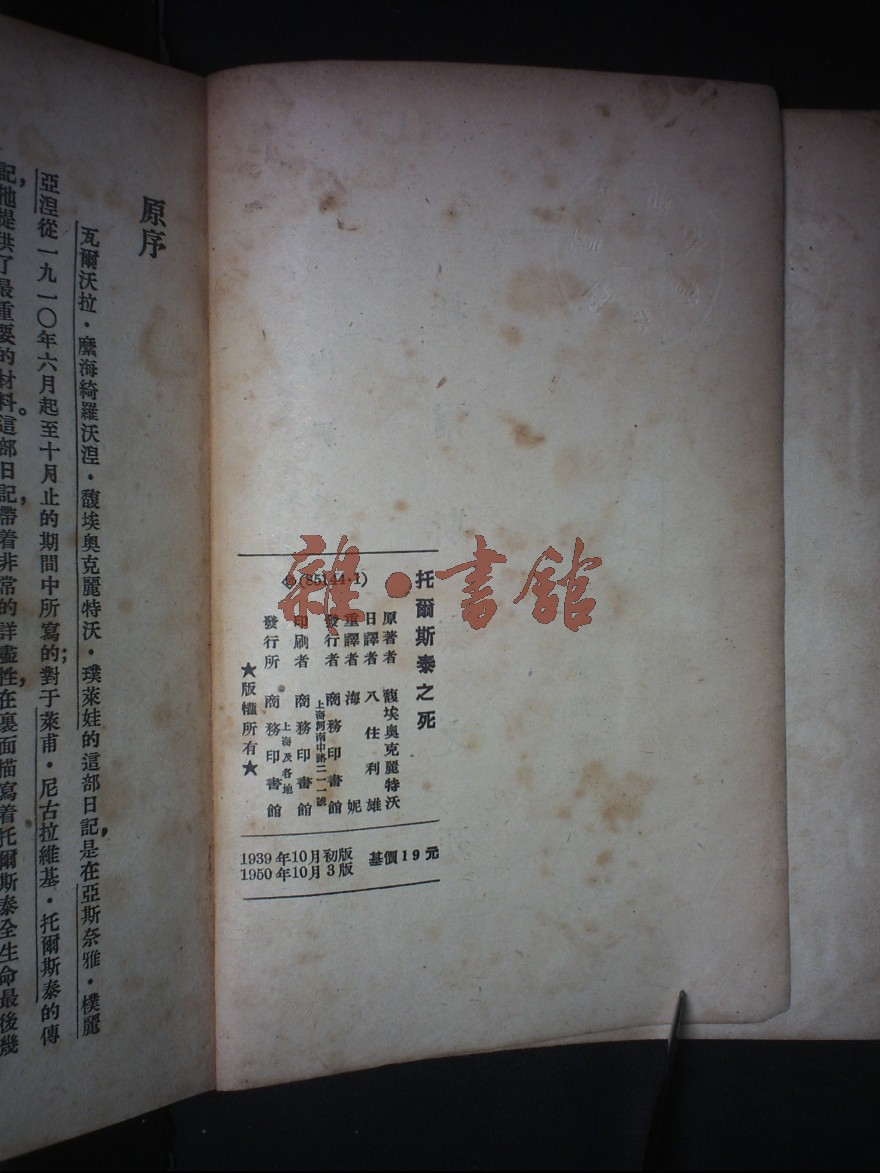 托爾斯泰之死
原著者 馥埃奧克麗特沃
日譯者 八住利雄
重譯者 海妮
發行者 商務印書館
上海河南中路二一一號
印刷者 商務印書館
發行所 商務印書館
上海及各地
★版權所有★
(85144·1)
1939年10月初版 基價19元
1950年10月3版
雜·書館
原序
瓦爾沃拉·縻海綺羅沃涅·馥埃奧克麗特沃·璞萊娃的這部日記,是在亞斯奈雅·樸麗
亞涅從一九一〇年六月起至十月止的期間中所寫的;對于萊甫·尼古拉維基·托爾斯泰的傳
記,他提供了最重要的材料。這部日記,帶着非常的詳盡性,在裏面描寫着托爾斯泰全生命最後幾